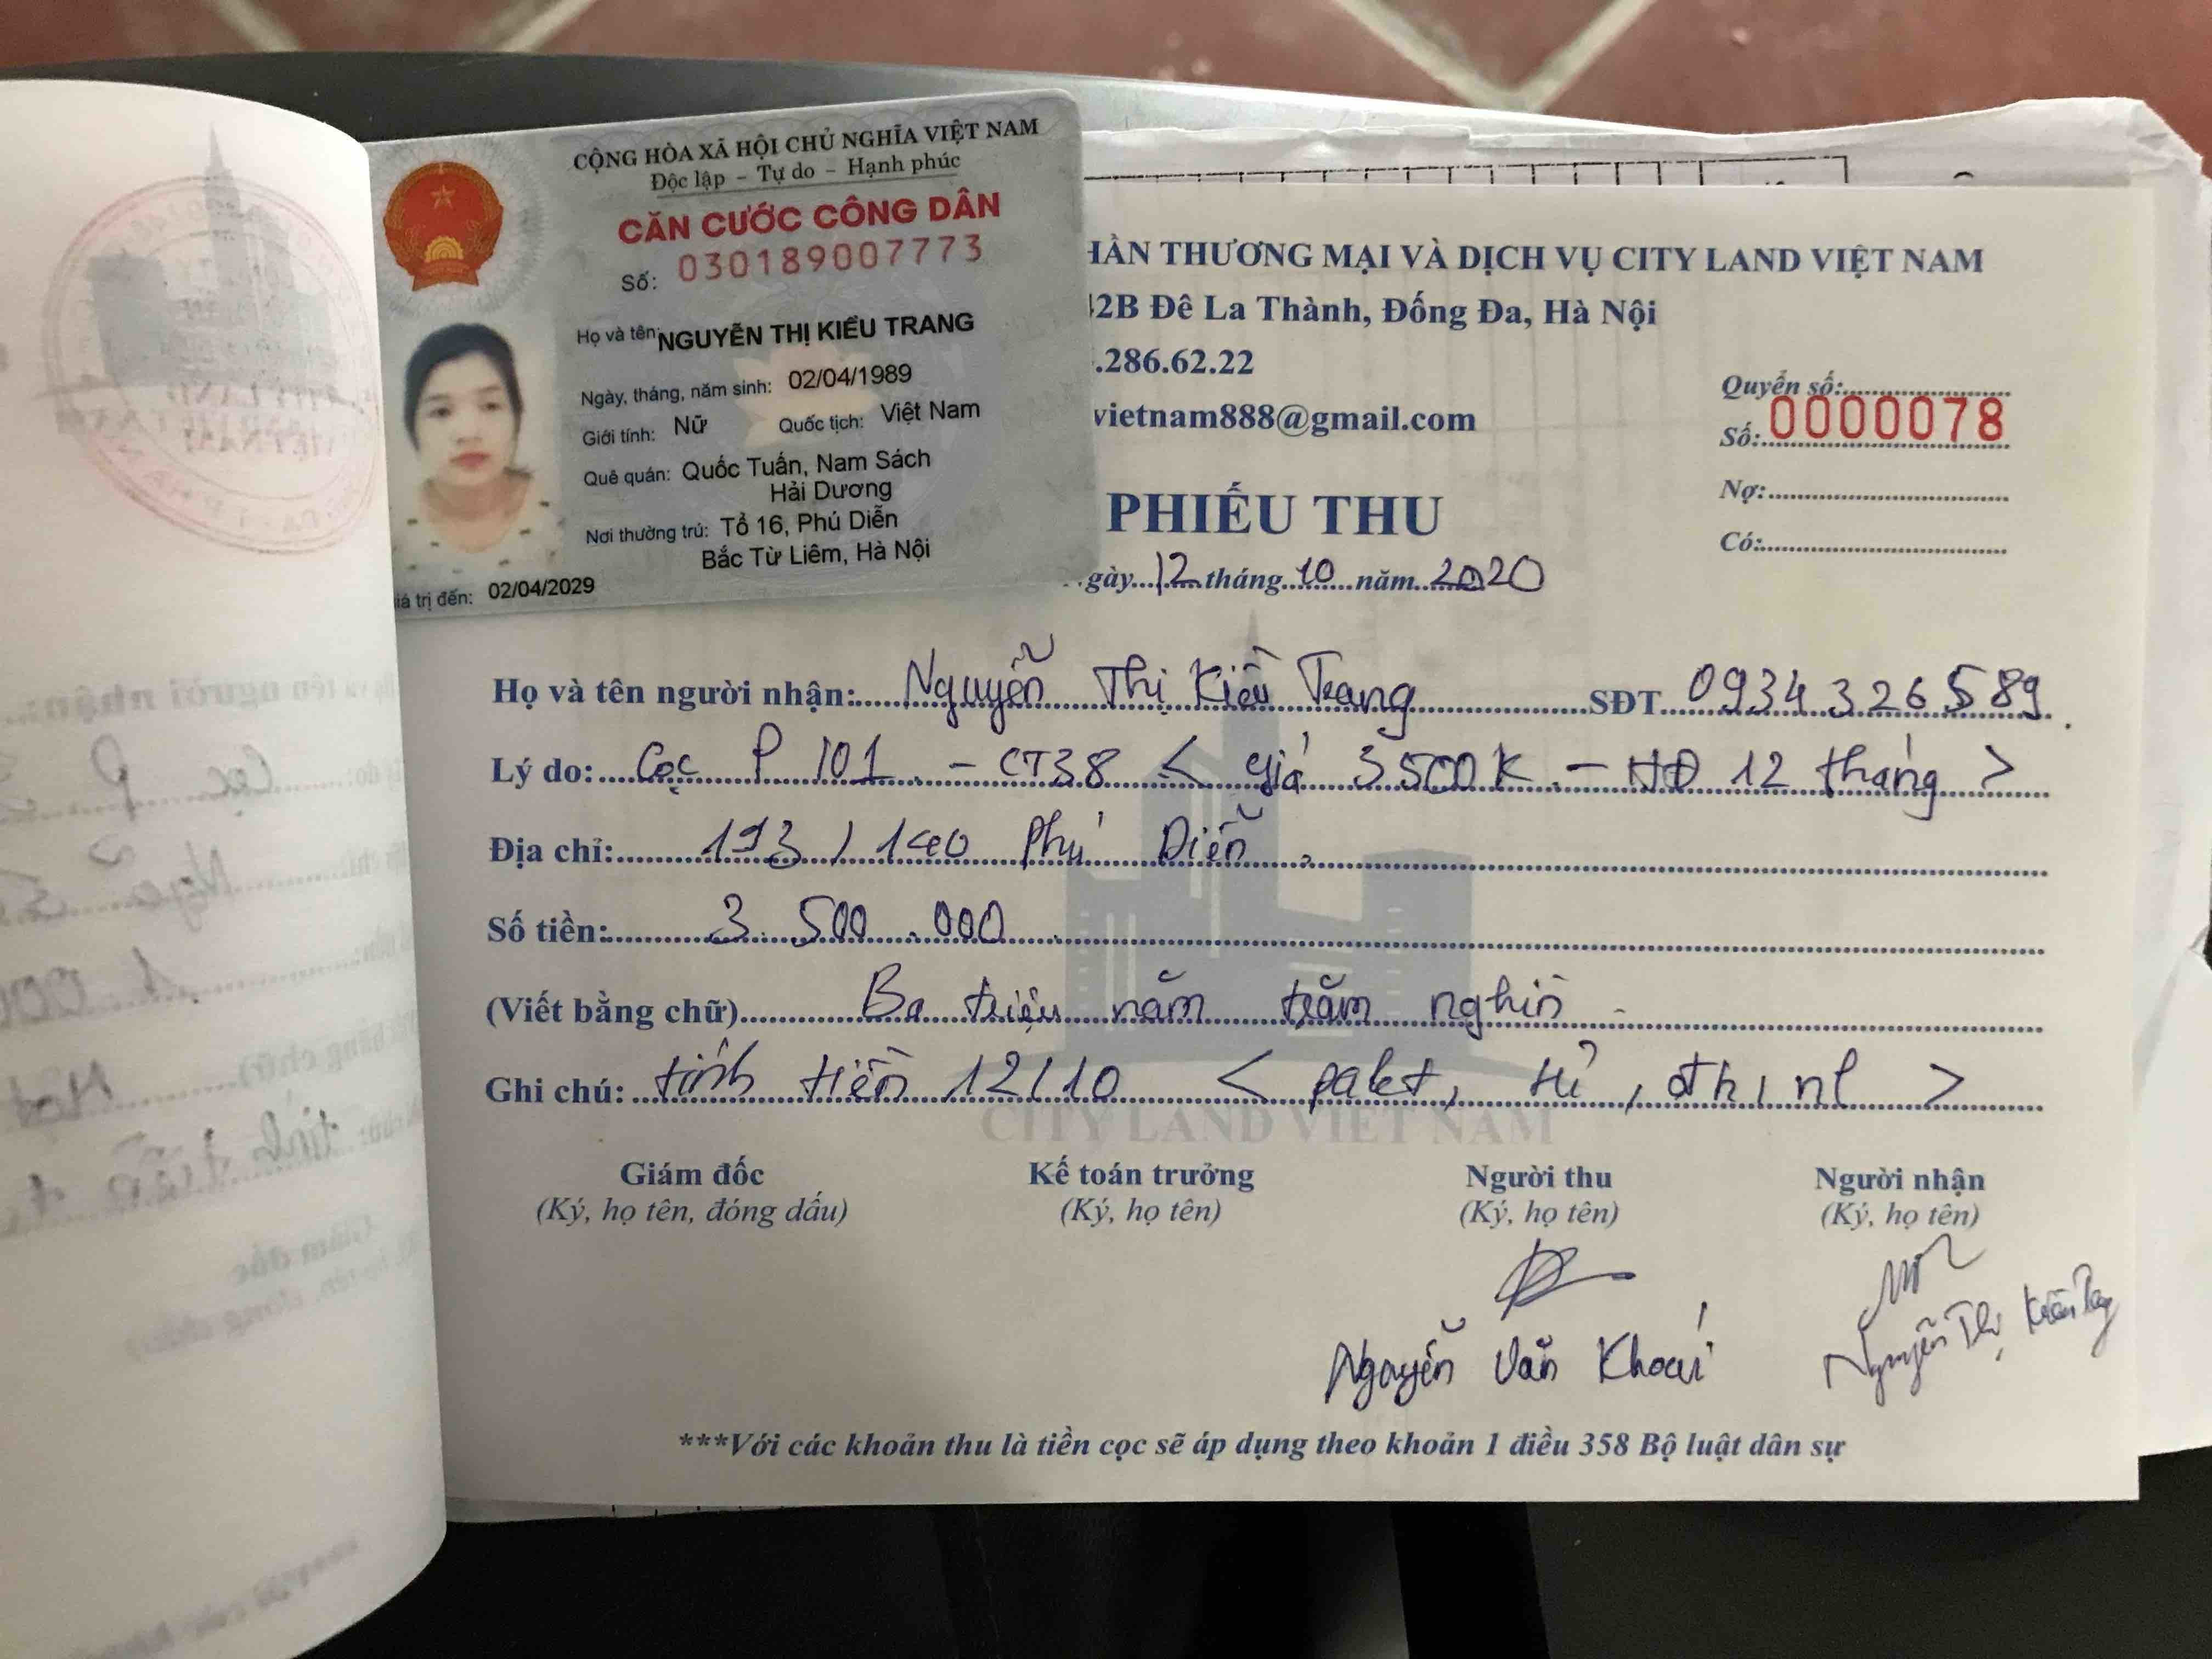 CỘNG HÒA XÃ HỘI CHỦ NGHĨA VIỆT NAM
Độc lập - Tự do - Hạnh phúc
CĂN CƯỚC CÔNG DÂN
Số: 030189007773
Họ và tên: NGUYỄN THỊ KIỀU TRANG
Ngày, tháng, năm sinh: 02/04/1989
Giới tính: Nữ Quốc tịch: Việt Nam
Quê quán: Quốc Tuấn, Nam Sách
Hải Dương
Nơi thường trú: Tổ 16, Phú Diễn
Bắc Từ Liêm, Hà Nội
iá trị đến: 02/04/2029
HẦN THƯƠNG MẠI VÀ DỊCH VỤ CITY LAND VIỆT NAM
42B Đê La Thành, Đống Đa, Hà Nội
.286.62.22
vietnam888@gmail.com
Quyển số:
Số: 0000078
Nợ:
Có:
PHIẾU THU
gày 12 tháng 10 năm 2020
Họ và tên người nhận: Nguyễn Thị Kiều Trang SĐT 0934326589
Lý do: Cọc P 101 - CT38 < giá 3500K - HĐ 12 tháng >
Địa chỉ: 193 / 140 Phú Diễn
Số tiền: 3.500.000
(Viết bằng chữ) Ba triệu năm trăm nghìn
Ghi chú: tính tiền 12/10 < , tủ, đh, nl >
CITY LAND VIET NAM
Giám đốc Kế toán trưởng Người thu Người nhận
(Ký, họ tên, đóng dấu) (Ký, họ tên) (Ký, họ tên) (Ký, họ tên)
Nguyễn Văn Nguyễn Thị Kiều Trang
***Với các khoản thu là tiền cọc sẽ áp dụng theo khoản 1 điều 358 Bộ luật dân sự